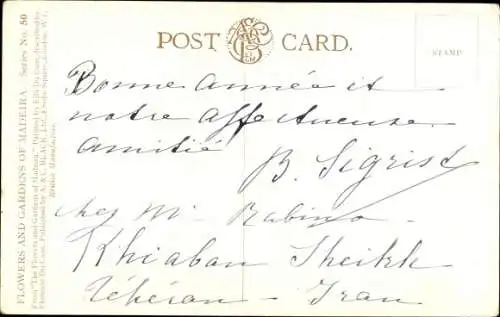 POST CARD.
STAMP
Bonne année et
notre affectueuse
amitié
B. Sigrist
chez Mr Rabino
Khiaban Sheikh
Téhéran - Iran
FLOWERS AND GARDENS OF MADEIRA Series No. 50
From "The Flowers and Gardens of Madeira." Painted by Ella Du Cane, described by
Florence Du Cane. Published by A. & C. BLACK, LTD., 4 Soho Square, London, W. 1.
British Manufacture.